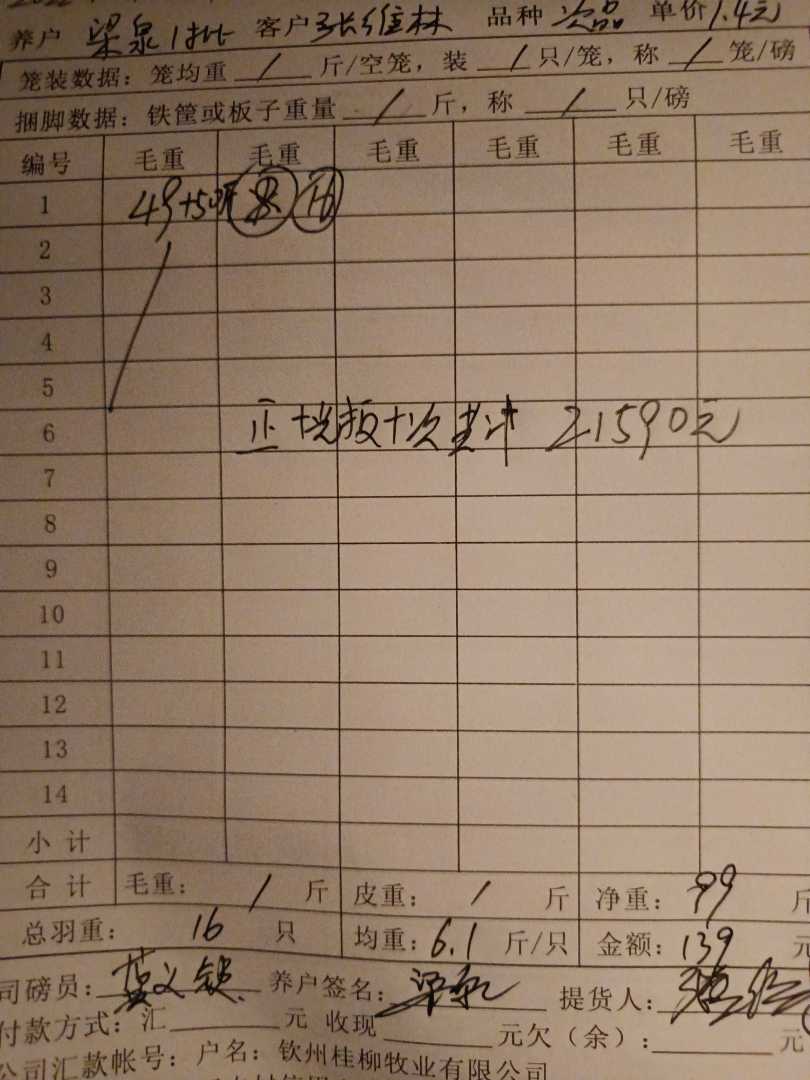 养户 梁泉1批 客户 张维林 品种 次品 单价 1.4元
笼装数据：笼均重 / 斤/空笼，装 / 只/笼，称 / 笼/磅
捆脚数据：铁筐或板子重量 / 斤，称 / 只/磅
编号 毛重 毛重 毛重 毛重 毛重 毛重
1 49+50
2
3
4
5
6 正 次 共计 21590元
7
8
9
10
11
12
13
14
小计
合计 毛重： / 斤 皮重： / 斤 净重： 99 斤
总羽重： 16 只 均重：6.1 斤/只 金额：139 元
司磅员： 养户签名：梁泉 提货人：
付款方式：汇 元 收现 元欠（余）： 元
公司汇款帐号：户名：钦州桂柳牧业有限公司